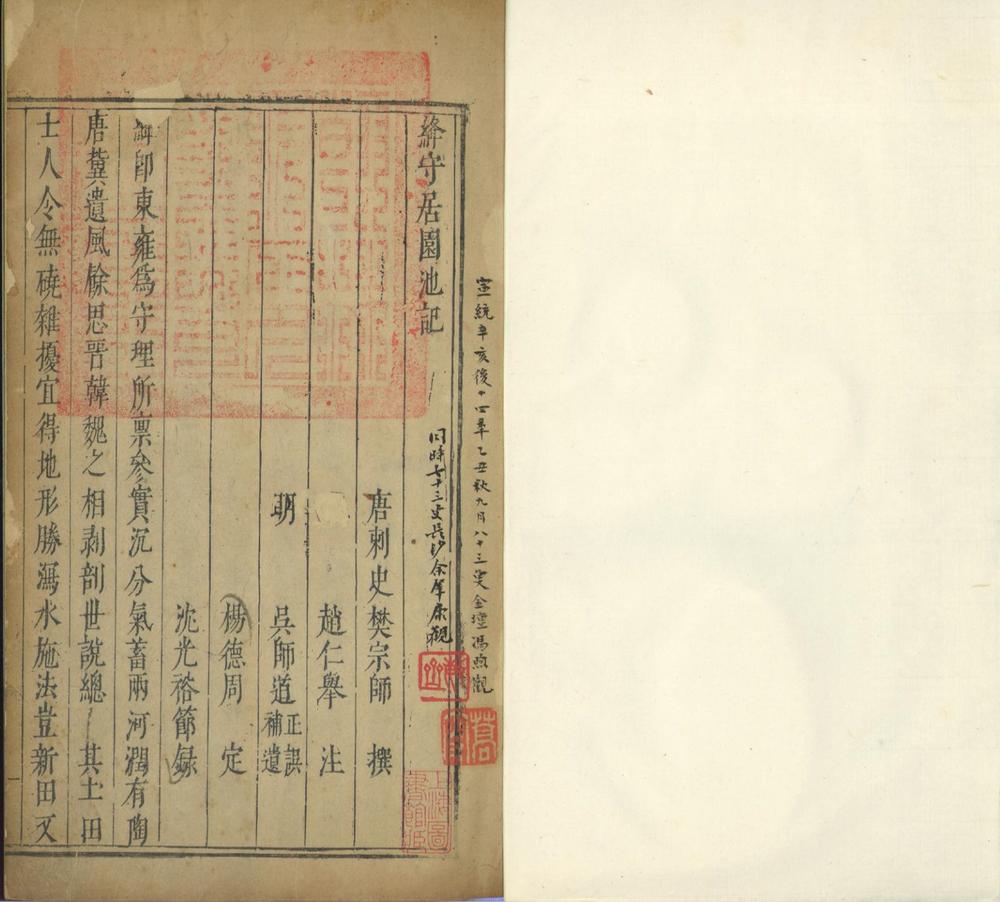 宣統辛亥後十四年乙丑秋九月八十三叟金壇馮煦觀
同時七十三叟長沙余肇康觀
絳守居園池記
唐刺史樊宗師 撰
趙仁舉 注
明 吳師道 正誤補遺
楊德周 定
沈光裕節錄
絳即東雍爲守理所稟參實沉分氣蓄兩河潤有陶
唐冀遺風餘思晉韓魏之相剥剖世說總 其土田
士人令無磽雜擾宜得地形勝瀉水施法豈新田又
上海圖書館藏